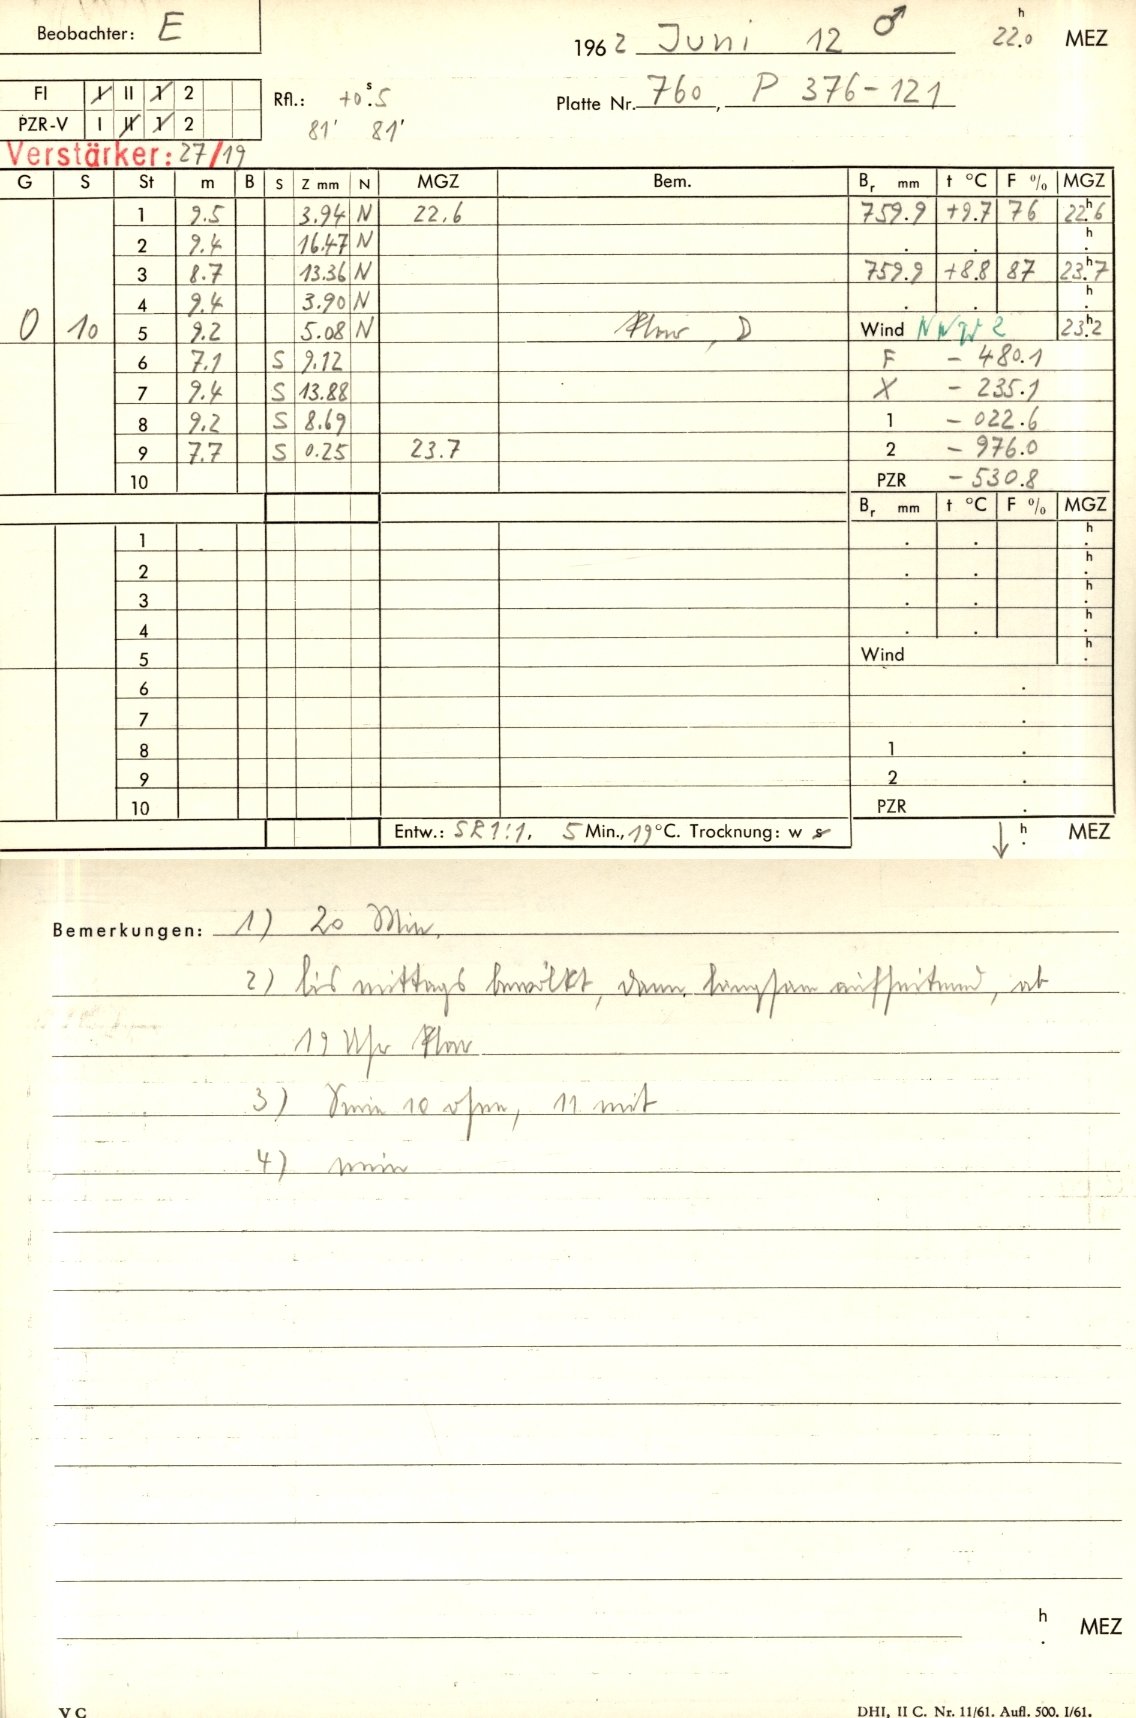 Beobachter: E
1962 Juni 12 ♂ 22.0 h MEZ
FI I II 1 2
Rfl.: +0.5 s
Platte Nr. 760, P 376-121
PZR-V I II 1 2
81' 81'
Verstärker: 27/19
G S St m B S Z mm N MGZ Bem. Br mm t °C F % MGZ
1 9.5 3.94 N 22.6 759.9 +9.7 76 22.h6
2 9.4 16.47 N . . h.
3 8.7 13.36 N 759.9 +8.8 87 23.h7
4 9.4 3.90 N . . h.
0 10 5 9.2 5.08 N klar, D Wind NW 2 23.h2
6 7.1 S 9.12 F - 480.1
7 9.4 S 13.88 X - 235.1
8 9.2 S 8.69 1 - 022.6
9 7.7 S 0.25 23.7 2 - 976.0
10 PZR - 530.8
Br mm t °C F % MGZ
1 . . h.
2 . . h.
3 . . h.
4 . . h.
5 Wind h.
6 .
7 .
8 1 .
9 2 .
10 PZR .
Entw.: SR 1:1, 5 Min., 19°C. Trocknung: w s
↓ h. MEZ
Bemerkungen: 1) 20 Min.
2) bis mittags bewölkt, dann langsam aufheiternd, ab
19 Uhr klar
3) Serie 10 ohne, 11 mit
4) nein
h. MEZ
V C
DHI, II C. Nr. 11/61. Aufl. 500. I/61.